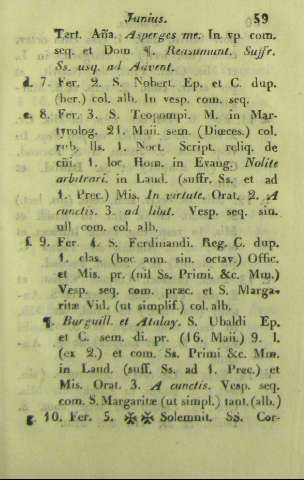 Junius. 59
Tert. Aña. Asperges me. In vp. com.
seq. et Dom ¶. Reasumunt. Suffr.
Ss. usq. ad Advent.
d. 7. Fer. 2. S. Nobert. Ep. et C. dup.
(her.) col. alb. In vesp. com. seq.
e. 8. Fer. 3. S. Teopompi. M. in Mar-
tyrolog. 21. Maii. sem. (Diœces.) col.
rub. lls. 1. Noct. Script. reliq. de
cñi. 1. loc. Hom. in Evang. Nolite
arbitrari. in Laud. (suffr. Ss. et ad
1. Prec.) Mis. In virtute. Orat. 2. A
cunctis. 3. ad libit. Vesp. seq. sin.
ull com. col. alb.
f. 9. Fer. 4. S. Ferdinandi. Reg. C. dup.
1. clas. (hoc ann. sin. octav.) Offic.
et Mis. pr. (nil Ss. Primi. &c. Mm.)
Vesp. seq. com. præc. et S. Marga-
ritæ Vid. (ut simplif.) col. alb.
¶. Burguill. et Atalay. S. Ubaldi Ep.
et C. sem. di. pr. (16. Maii.) 9. l.
(ex 2.) et com. Ss. Primi &c. Mm.
in Laud. (suff. Ss. ad 1. Prec.) et
Mis. Orat. 3. A cunctis. Vesp. seq.
com. S. Margaritæ (ut simpl.) tant. (alb.)
g. 10. Fer. 5. ✠✠ Solemnit. SS. Cor-